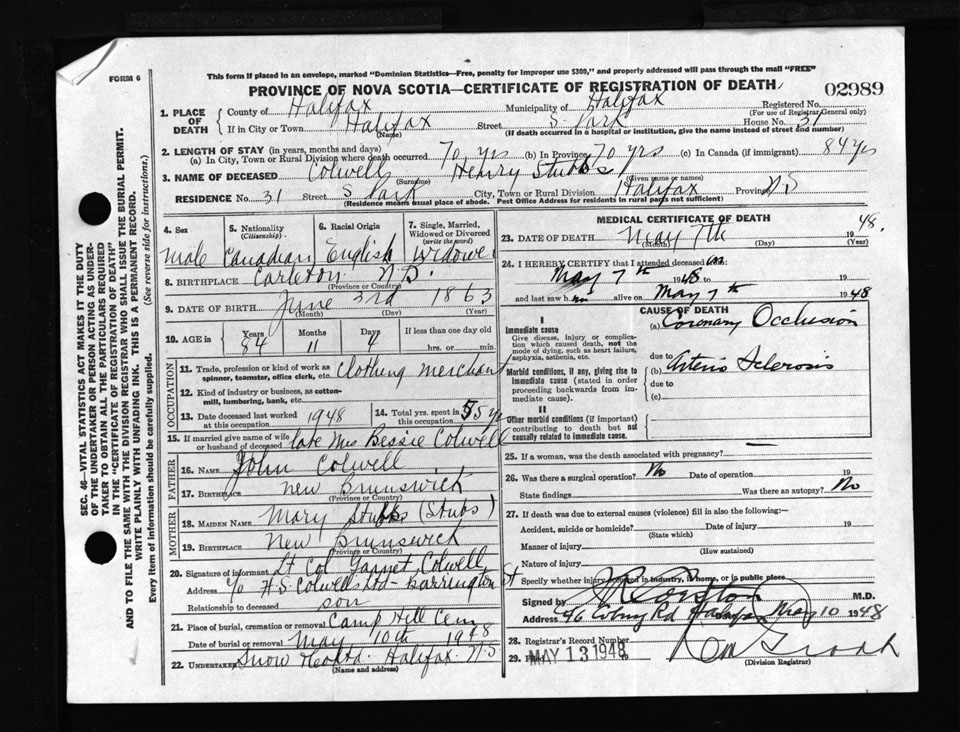 FORM 6
This form if placed in an envelope, marked "Dominion Statistics—Free, penalty for improper use $300," and properly addressed will pass through the mail "FREE"
PROVINCE OF NOVA SCOTIA—CERTIFICATE OF REGISTRATION OF DEATH
02989
1. PLACE OF DEATH County of Halifax Municipality of Halifax Registered No.
(For use of Registrar General only)
If in City or Town Halifax Street S. Park House No. 31
(Name) (If death occurred in a hospital or institution, give the name instead of street and number)
2. LENGTH OF STAY (in years, months and days)
(a) In City, Town or Rural Division where death occurred 70 yrs (b) In Province 70 yrs (c) In Canada (if immigrant) 84 yrs
3. NAME OF DECEASED Colwell Henry Stubbs
(Surname) (Given name or names)
RESIDENCE No. 31 Street S Park City, Town or Rural Division Halifax Province N S
(Residence means usual place of abode. Post Office Address for residents in rural parts not sufficient)
4. Sex 5. Nationality (Citizenship) 6. Racial Origin 7. Single, Married, Widowed or Divorced (write the word)
Male Canadian English Widower
8. BIRTHPLACE Carleton N.B.
(Province or Country)
9. DATE OF BIRTH June 3rd 1863
(Month) (Day) (Year)
10. AGE in Years Months Days If less than one day old
84 11 4 hrs. or min.
OCCUPATION
11. Trade, profession or kind of work as spinner, teamster, office clerk, etc. Clothing Merchant
12. Kind of industry or business, as cotton-mill, lumbering, bank, etc.
13. Date deceased last worked at this occupation 1948 14. Total yrs. spent in this occupation 55 yrs
15. If married give name of wife or husband of deceased late Mrs Bessie Colwell
FATHER
16. NAME John Colwell
17. BIRTHPLACE New Brunswick
(Province or Country)
MOTHER
18. MAIDEN NAME Mary Stubbs (Stubs)
19. BIRTHPLACE New Brunswick
(Province or Country)
20. Signature of informant Lt Col Garnet Colwell
Address c/o H.S. Colwells Ltd - Barrington St
Relationship to deceased son
21. Place of burial, cremation or removal Camp Hill Cem
Date of burial or removal May 10th 1948
22. Undertaker Snow Halifax N.S
(Name and address)
MEDICAL CERTIFICATE OF DEATH
23. DATE OF DEATH May 7th 1948.
(Month) (Day) (Year)
24. I HEREBY CERTIFY that I attended deceased on
May 7th 1948 to 19
and last saw him alive on May 7th 1948
CAUSE OF DEATH
I
Immediate cause
Give disease, injury or complication which caused death, not the mode of dying, such as heart failure, asphyxia, asthenia, etc.
(a) Coronary Occlusion
due to
Morbid conditions, if any, giving rise to immediate cause (stated in order proceeding backwards from immediate cause).
(b) Arterio Sclerosis
due to
(c)
II
Other morbid conditions (if important) contributing to death but not causally related to immediate cause.
25. If a woman, was the death associated with pregnancy?
26. Was there a surgical operation? No Date of operation 19
State findings Was there an autopsy? No
27. If death was due to external causes (violence) fill in also the following:—
Accident, suicide or homicide? Date of injury 19
(State which)
Manner of injury
(How sustained)
Nature of injury
Specify whether injury occurred in industry, in home, or in public place
Signed by M.D.
Address 46 Rd Halifax May 10 1948
28. Registrar's Record Number
29. MAY 13 1948
(Division Registrar)
SEC. 46—VITAL STATISTICS ACT MAKES IT THE DUTY
OF THE UNDERTAKER OR PERSON ACTING AS UNDER-
TAKER TO OBTAIN ALL THE PARTICULARS REQUIRED
IN THE "CERTIFICATE OF REGISTRATION OF DEATH"
AND TO FILE THE SAME WITH THE DIVISION REGISTRAR WHO SHALL ISSUE THE BURIAL PERMIT.
WRITE PLAINLY WITH UNFADING INK. THIS IS A PERMANENT RECORD.
Every item of information should be carefully supplied. (See reverse side for instructions.)